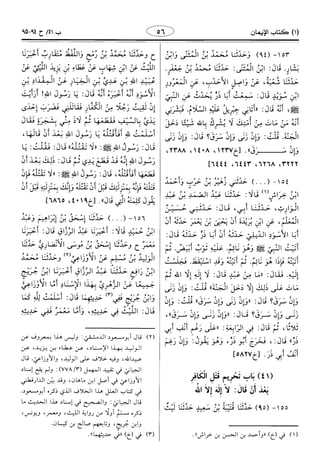 (١) كتاب الإيمان
٥٦
ب ٤١/ ح ٩٤-٩٥
١٥٣- (٩٤) وَحَدَّثَنَا مُحَمَّدُ بْنُ الْمُثَنَّى وَابْنُ
بَشَّارٍ. قَالَ: ابْنُ الْمُثَنَّى: حَدَّثَنَا مُحَمَّدُ بْنُ جَعْفَرٍ.
حَدَّثَنَا شُعْبَةُ، عَنْ وَاصِلٍ الْأَحْدَبِ، عَنِ الْمَعْرُورِ
بْنِ سُوَيْدٍ قَالَ: سَمِعْتُ أَبَا ذَرٍّ يُحَدِّثُ عَنِ النَّبِيِّ
ﷺ، أَنَّهُ قَالَ: «أَتَانِي جِبْرِيلُ عَلَيْهِ السَّلَامُ. فَبَشَّرَنِي
أَنَّهُ مَنْ مَاتَ مِنْ أُمَّتِكَ لَا يُشْرِكُ بِاللهِ شَيْئًا دَخَلَ
الْجَنَّةَ. قُلْتُ: وَإِنْ زَنَى وَإِنْ سَرَقَ؟ قَالَ: وَإِنْ زَنَى
وَإِنْ سَـــرَقَ». [خ: ١٢٣٧، ١٤٠٨، ٢٣٨٨،
٣٢٢٢، ٦٢٦٨، ٦٤٤٣، ٦٤٤٤]
١٥٤-(...) حَدَّثَنِي زُهَيْرُ بْنُ حَرْبٍ وَأَحْمَدُ
بْنُ خِرَاشٍ(١) قَالَا: حَدَّثَنَا عَبْدُ الصَّمَدِ بْنُ عَبْدِ
الْوَارِثِ، حَدَّثَنَا أَبِي، قَالَ: حَدَّثَنِي حُسَيْنٌ
الْمُعَلِّمُ، عَنِ ابْنِ بُرَيْدَةَ أَنَّ يَحْيَى بْنَ يَعْمَرَ حَدَّثَهُ أَنَّ
أَبَا الْأَسْوَدِ الدِّيلِيَّ حَدَّثَهُ أَنَّ أَبَا ذَرٍّ حَدَّثَهُ قَالَ:
أَتَيْتُ النَّبِيَّ ﷺ وَهُوَ نَائِمٌ. عَلَيْهِ ثَوْبٌ أَبْيَضُ. ثُمَّ
أَتَيْتُهُ فَإِذَا هُوَ نَائِمٌ. ثُمَّ أَتَيْتُهُ وَقَدِ اسْتَيْقَظَ. فَجَلَسْتُ
إِلَيْهِ. فَقَالَ: «مَا مِنْ عَبْدٍ قَالَ: لَا إِلَهَ إِلَّا اللهُ ثُمَّ
مَاتَ عَلَى ذَلِكَ إِلَّا دَخَلَ الْجَنَّةَ» قُلْتُ: وَإِنْ زَنَى
وَإِنْ سَرَقَ؟ قَالَ: «وَإِنْ زَنَى وَإِنْ سَرَقَ» قُلْتُ: وَإِنْ
زَنَى وَإِنْ سَرَقَ؟ قَالَ: «وَإِنْ زَنَى وَإِنْ سَرَقَ».
ثَلَاثًا، ثُمَّ قَالَ: فِي الرَّابِعَةِ: «عَلَى رَغْمِ أَنْفِ أَبِي
ذَرٍّ» قَالَ: فَخَرَجَ أَبُو ذَرٍّ، وَهُوَ يَقُولُ: وَإِنْ رَغِمَ
أَنْفُ أَبِي ذَرٍّ. [خ٥٨٢٧]
(٤١) بَابُ تَحْرِيمِ قَتْلِ الْكَافِرِ
بَعْدَ أَنْ قَالَ: لَا إِلَهَ إِلَّا اللهُ
١٥٥- (٩٥) حَدَّثَنَا قُتَيْبَةُ بْنُ سَعِيدٍ حَدَّثَنَا لَيْثٌ
(١) في (خ) «وأحمد بن الحسن بن خراش».
ح وَحَدَّثَنَا مُحَمَّدُ بْنُ رُمْحٍ وَاللَّفْظُ مُتَقَارِبٌ أَخْبَرَنَا
اللَّيْثُ عَنِ ابْنِ شِهَابٍ عَنْ عَطَاءِ بْنِ يَزِيدَ اللَّيْثِيِّ عَنْ
عُبَيْدِ اللهِ بْنِ عَدِيِّ بْنِ الْخِيَارِ عَنِ الْمِقْدَادِ بْنِ
الْأَسْوَدِ أَنَّهُ أَخْبَرَهُ أَنَّهُ قَالَ: يَا رَسُولَ اللهِ! أَرَأَيْتَ
إِنْ لَقِيتُ رَجُلًا مِنَ الْكُفَّارِ فَقَاتَلَنِي فَضَرَبَ إِحْدَى
يَدَيَّ بِالسَّيْفِ فَقَطَعَهَا ثُمَّ لَاذَ مِنِّي بِشَجَرَةٍ فَقَالَ
أَسْلَمْتُ لِلَّهِ أَفَأَقْتُلُهُ يَا رَسُولَ اللهِ بَعْدَ أَنْ قَالَهَا،
قَالَ رَسُولُ اللهِ ﷺ: «لَا تَقْتُلْهُ» قَالَ: فَقُلْتُ: يَا
رَسُولَ اللهِ إِنَّهُ قَدْ قَطَعَ يَدِي ثُمَّ قَالَ: ذَلِكَ بَعْدَ أَنْ
قَطَعَهَا أَفَأَقْتُلُهُ، قَالَ رَسُولُ اللهِ ﷺ: «لَا تَقْتُلْهُ فَإِنْ
قَتَلْتَهُ فَإِنَّهُ بِمَنْزِلَتِكَ قَبْلَ أَنْ تَقْتُلَهُ وَإِنَّكَ بِمَنْزِلَتِهِ قَبْلَ أَنْ
يَقُولَ كَلِمَتَهُ الَّتِي قَالَ». [خ٤٠١٩، ٦٨٦٥]
١٥٦- (...) حَدَّثَنَا إِسْحَقُ بْنُ إِبْرَاهِيمَ وَعَبْدُ
بْنُ حُمَيْدٍ قَالَا: أَخْبَرَنَا عَبْدُ الرَّزَّاقِ قَالَ: أَخْبَرَنَا
مَعْمَرٌ ح وَحَدَّثَنَا إِسْحَقُ بْنُ مُوسَى الْأَنْصَارِيُّ حَدَّثَنَا
الْوَلِيدُ بْنُ مُسْلِمٍ عَنِ الْأَوْزَاعِيِّ(٢) ح وَحَدَّثَنَا مُحَمَّدُ
ابْنُ رَافِعٍ حَدَّثَنَا عَبْدُ الرَّزَّاقِ أَخْبَرَنَا ابْنُ جُرَيْجٍ
جَمِيعًا عَنِ الزُّهْرِيِّ بِهَذَا الْإِسْنَادِ أَمَّا الْأَوْزَاعِيُّ
وَابْنُ جُرَيْجٍ فَفِي(٣) حَدِيثِهِمَا قَالَ: أَسْلَمْتُ لِلَّهِ كَمَا
قَالَ: اللَّيْثُ فِي حَدِيثِهِ. وَأَمَّا مَعْمَرٌ فَفِي حَدِيثِهِ
(٢) قال أبومسعود الدمشقيّ: وليس هذا بمعروف عن
الوليد بهذا الإسناد، عن عطاء بن يزيد، عن
عبيدالله، وفيه خلاف على الوليد، والأوزاعيّ. قال
الجيانيّ في تقييد المهمل (٧٧٨/٣): ولم يقع إسناد
الأوزاعي في أصل ابن ماهان، وقد بيّن الدارقطني
في كتاب العلل هذا الخلاف الذي ذكره أبومسعود.
قال الجيانيّ: والصحيح في إسناد هذا الحديث ما
ذكره مسلم أولًا من رواية الليث، ومعمر، ويونس،
وابن جريج، وتابعهم صالح بن كيسان.
(٣) في (خ) «في حديثهما».